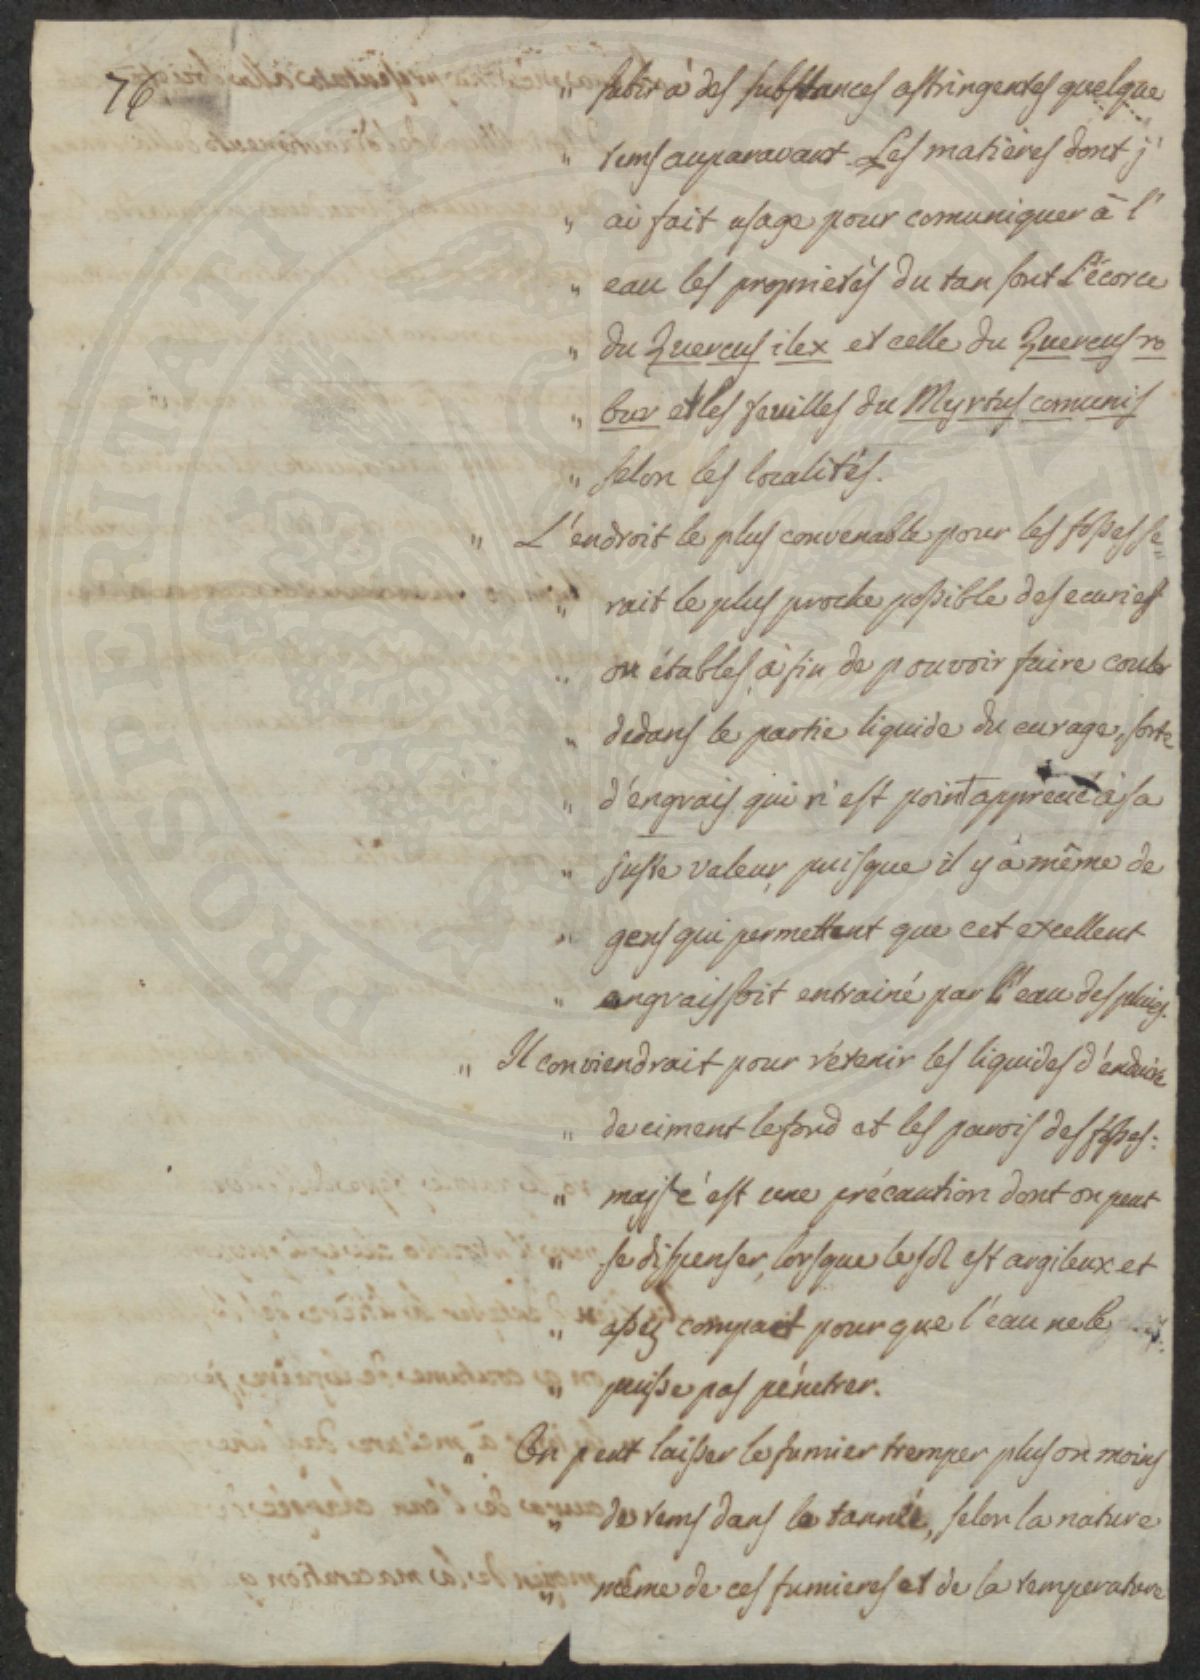 76
" subir à des substances astringentes quelque
" tems auparavant. Les matières dont j'
" ai fait usage pour comuniquer à l'
" eau les proprietés du tan sont l'écorce
" du Quercus ilex et celle du Quercus ro
" bur et les feuilles du Myrtus comunis
" selon les localités.
" L'endroit le plus convenable pour les fosses se=
" rait le plus proche possible des ecuries
" ou étables, à fin de pouvoir faire couler
" dedans le partie liquide du curage, sorte
" d'engrais qui n'est point apprecié à sa
" juste valeur, puisque il y à même de
" gens qui permettent que cet excellent
" engrais soit entrainé par l'eau des pluies.
" Il conviendrait pour retenir les liquides d'enduire
" de ciment le fond et les parois des fosses:
" mais c'est une précaution dont on peut
" se dispenser, lorsque le sol est argileux et
" assez compact pour que l'eau ne le
" puisse pas pénetrer.
" On peut laisser le fumier tremper plus ou moins
" de tems dans la tannée, selon la nature
" même de ces fumieres et de la temperature
PROSPERITATI PUBLICAE